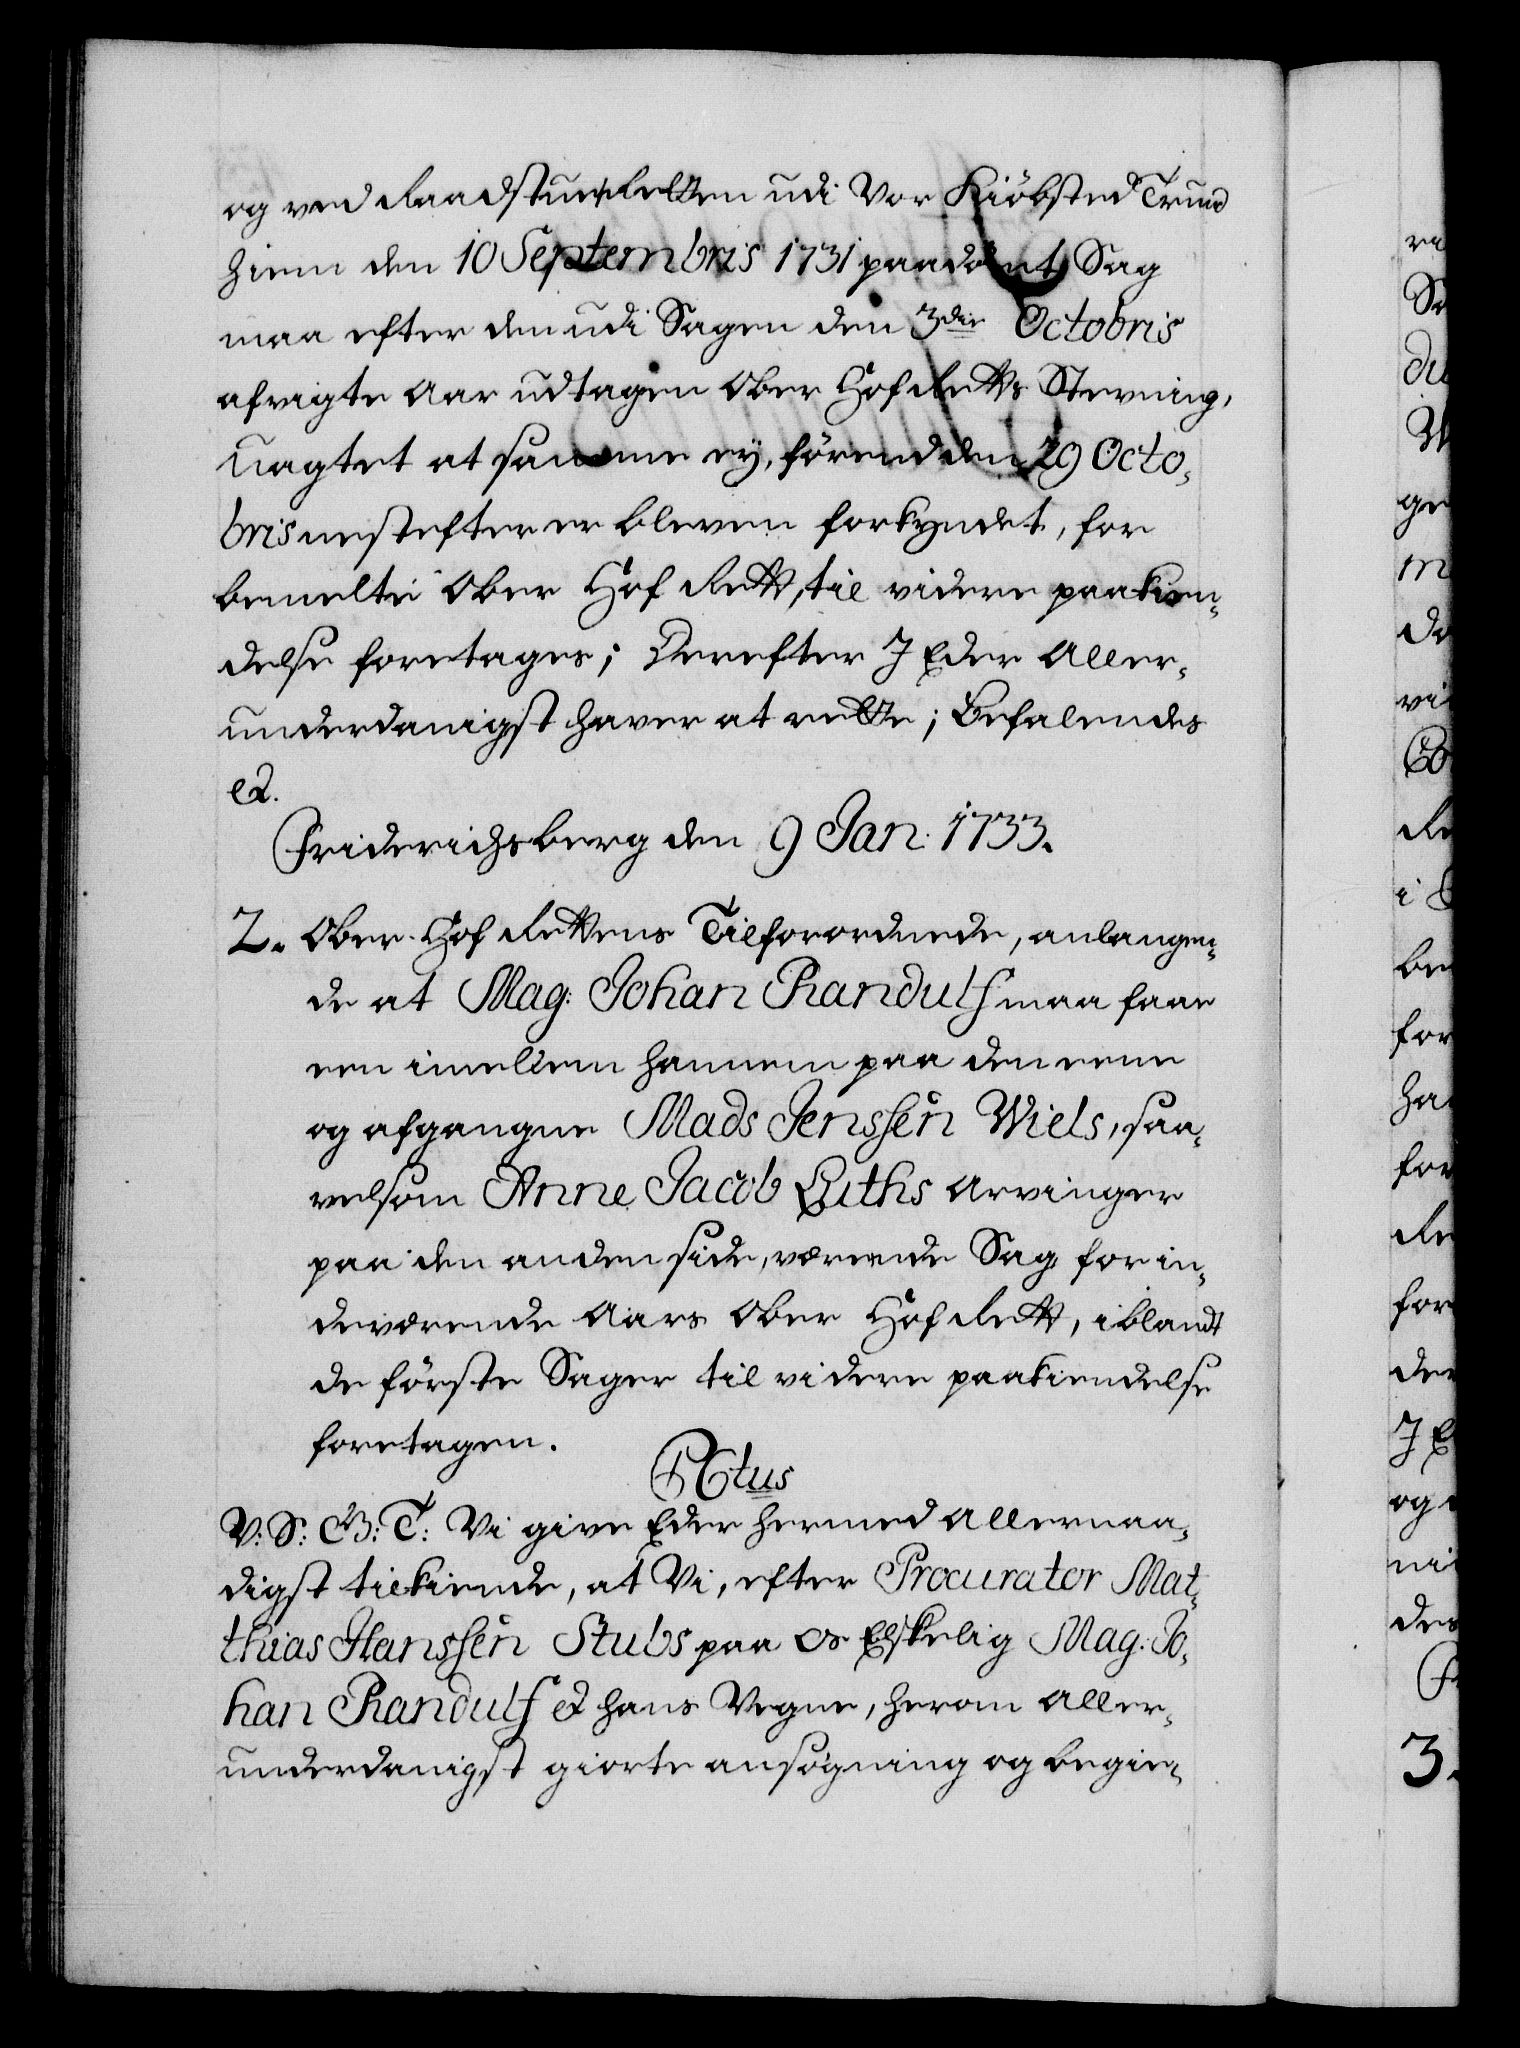 og ved Raadstue Retten udi Vor Kiöbsted Trund
hiem den 10 Septembris 1731 paadömt Sag
maa efter den udi Sagen den 3die Octobris
afvigte Aar udtagen Ober Hof Retts Stevning,
uagtet at samme ey, förend den 29 Octo,
bris nest efter er bleven forkyndet, for
bemelte Ober Hof Rett, til videre paakien,
delse foretages; Derefter I Eder Aller,
underdanigst haver at rette; Befalendes
etc.
Friderichsberg den 9 Jan: 1733.
2. Ober-Hof Rettens Tilforordnede, anlangen,
de at Mag: Johan Randulf maa faae
een imellem hannem paa den eene
og afgangne Mads Jenssen Wiels, saa,
velsom Anne Jacob Luths Arvinger
paa den anden side, værende Sag, for in,
deværende Aars Ober Hof Rett, iblandt
de förste Sager til videre paakiendelse
foretagen.
PCtus
V: S: G: T: Vi give Eder hermed Allernaa,
digst tilkiende, at Vi, efter Procurator Mat,
thias Hanssen Stubs paa Os Elskelig Mag: Jo,
han Randulf etc hans Vegne, herom Aller,
underdanigst giorte ansögning og begie,
3.